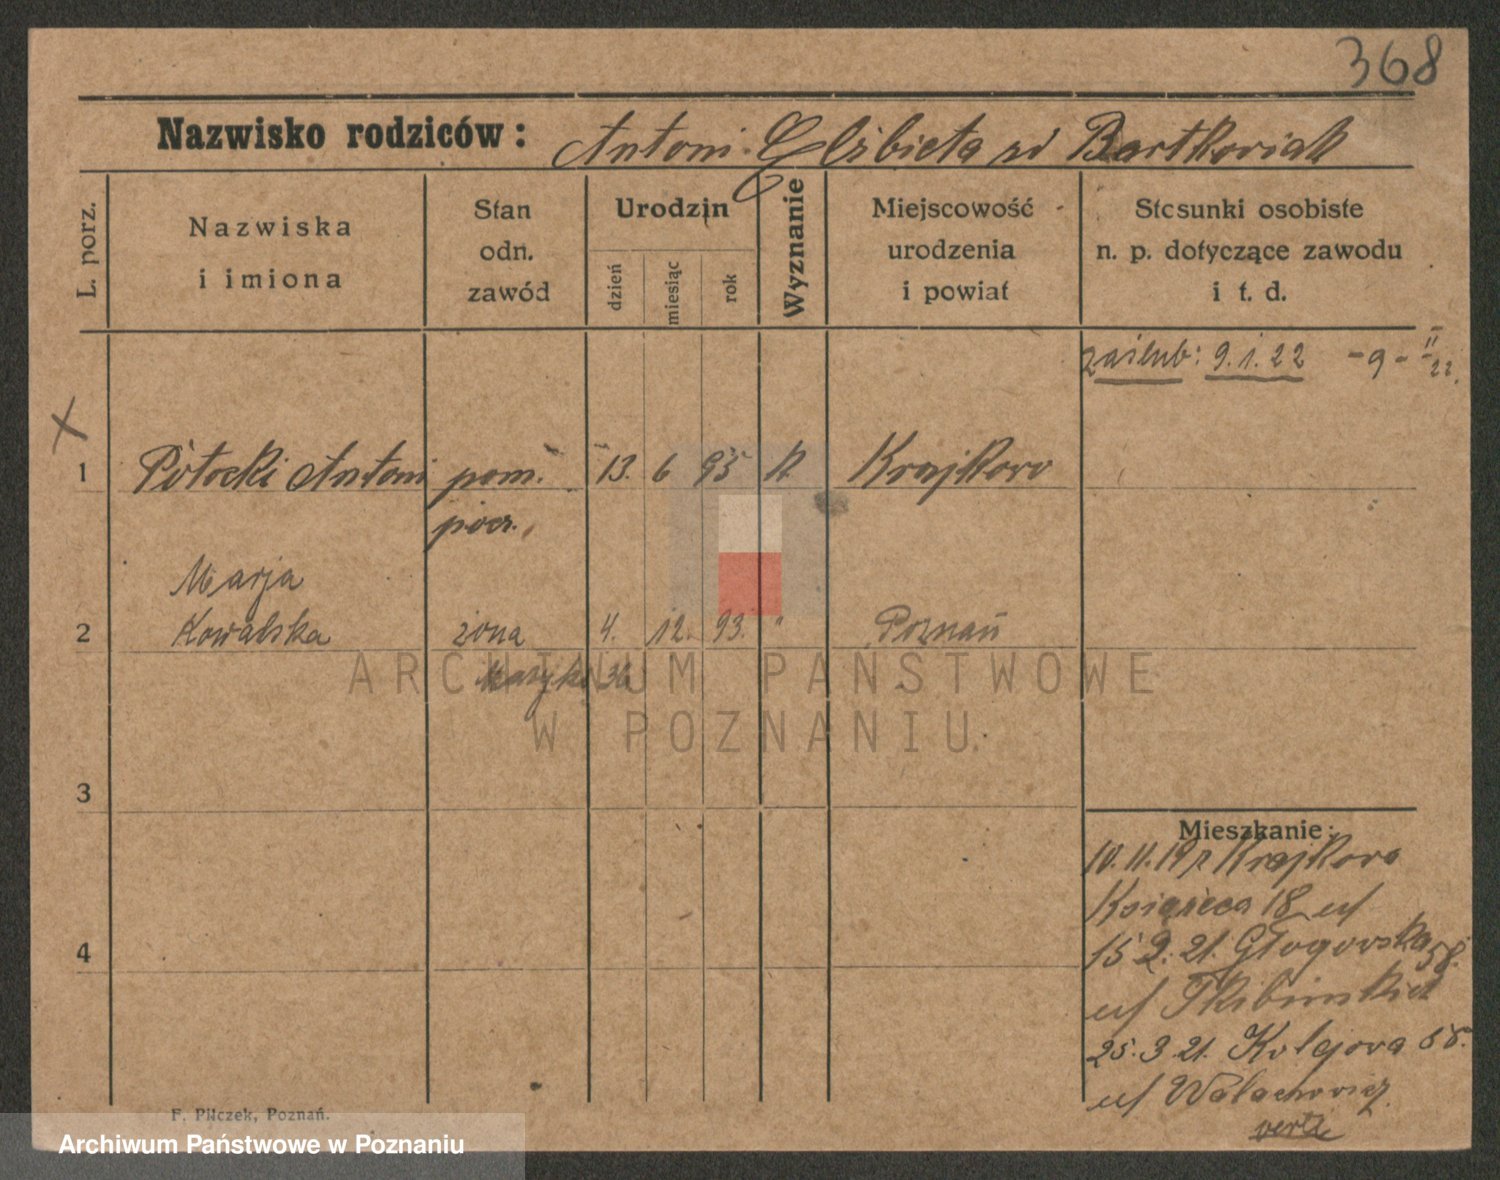 368
Nazwisko rodziców: Antoni. Elżbieta zd Bartkowiak
L. porz.
Nazwiska i imiona
Stan odn. zawód
Urodzin
dzień
miesiąc
rok
Wyznanie
Miejscowość urodzenia i powiat
Stosunki osobiste n. p. dotyczące zawodu i t. d.
zaślub: 9.1.22 - 9 - II 22.
X
1 Potocki Antoni pom. 13. 6 95 K Krajkowo
pocz.
Marja
2 Kowalska żona 4. 12. 93. " Poznań
3
Mieszkanie:
10.11.19 z Krajkowa
Książęca 18 u/
4
15 2. 21. Głogowska 58.
u/
25. 3 21. Kolejowa
u/ Walachowicz
verte
F. Pilczek, Poznań.
ARCHIWUM PAŃSTWOWE
W POZNANIU
Archiwum Państwowe w Poznaniu